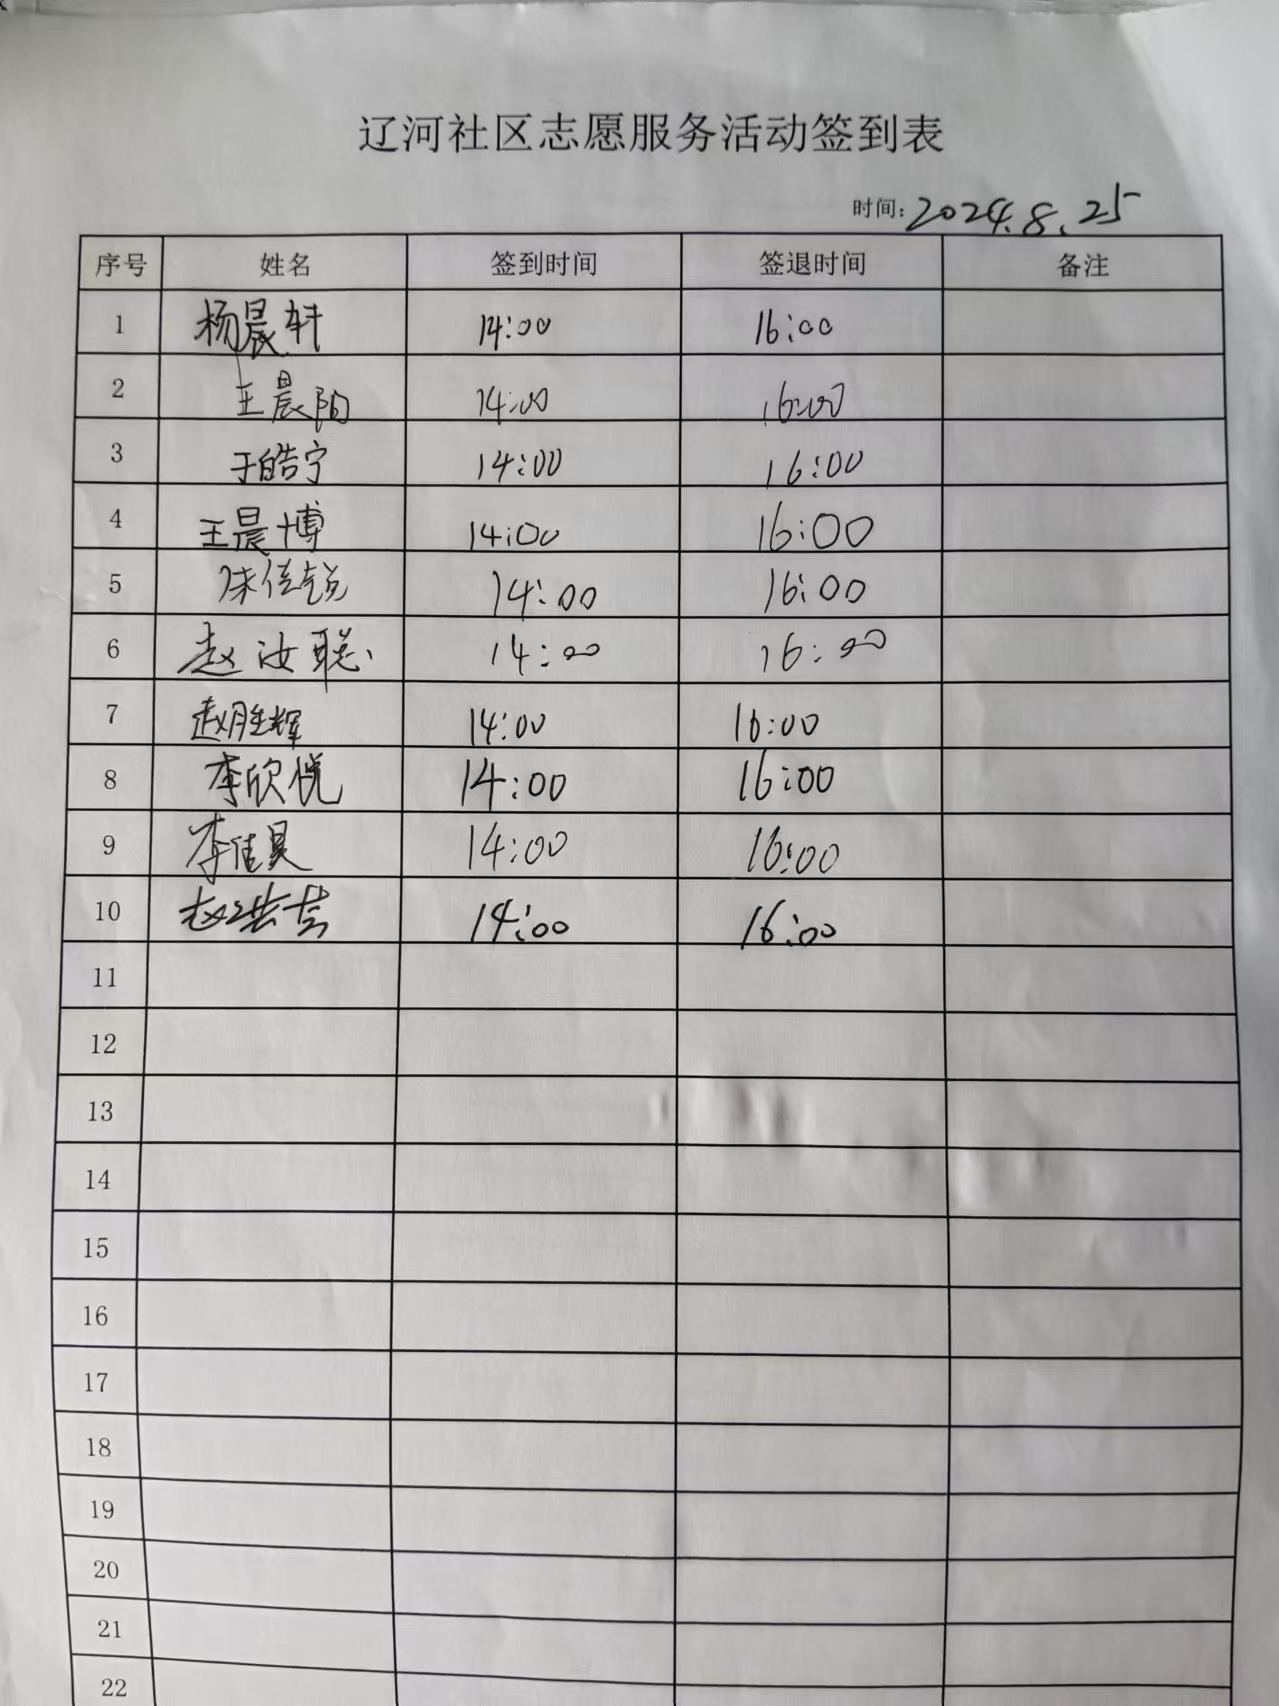 辽河社区志愿服务活动签到表
时间: 2024.8.25
序号 姓名 签到时间 签退时间 备注
1 杨晨轩 14:00 16:00
2 王晨阳 14:00 16:00
3 于皓宁 14:00 16:00
4 王晨博 14:00 16:00
5 14:00 16:00
6 赵汝聪 14:00 16:00
7 赵胜辉 14:00 16:00
8 李欣悦 14:00 16:00
9 李佳昊 14:00 16:00
10 14:00 16:00
11
12
13
14
15
16
17
18
19
20
21
22